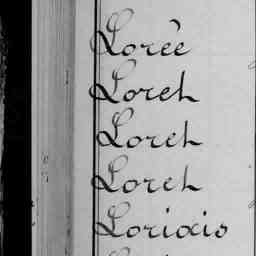 Lorée
Loreh
Loreh
Loreh
Lorioxis